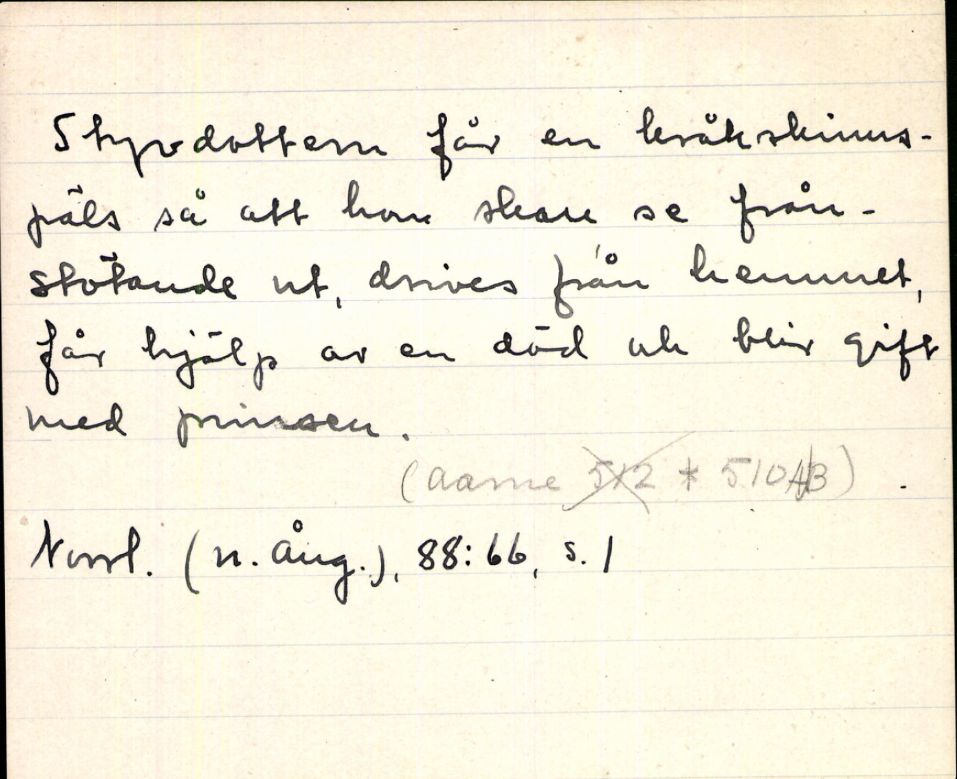 Styvdottern får en kråkskinns-
päls så att hon skall se från-
stötande ut, drives från hemmet,
får hjälp av en död och blir gift
med prinsen.
(Aarne 512 * 510AB)
Norrl. (n. Ång.), 88:66, s. 1